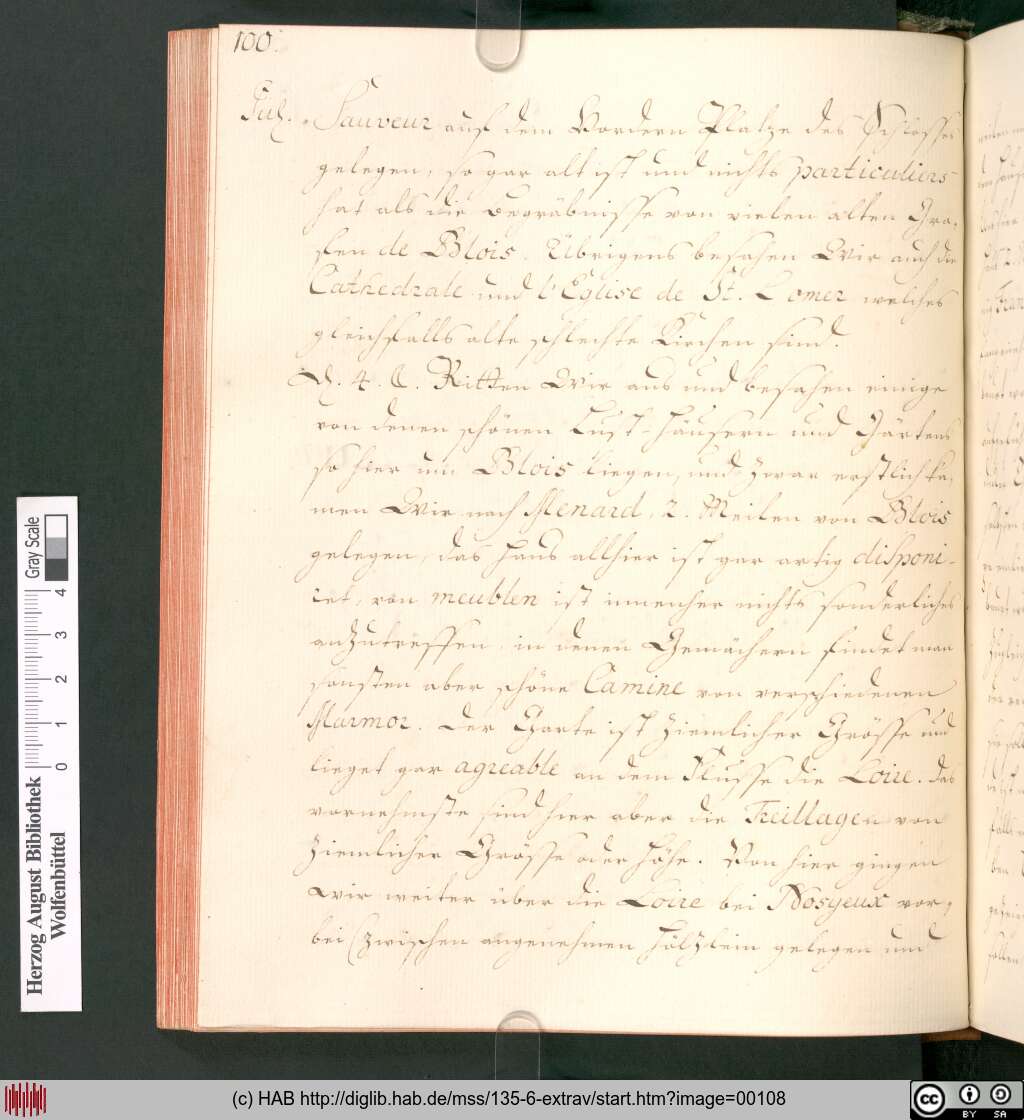 100.
Jul. Sauveur auf dem Vordern Platze des Schlosses
gelegen, so gar alt ist und nichts particuliers
hat als die Begräbnisse von vielen alten Gra-
fen de Blois. Übrigens besahen Wir auch die
Cathedrale und l'Eglise de St. Lomer welches
gleichfalls alte schlechte Kirchen sind.
D. 4. Ritten Wir aus und besahen einige
von denen schönen Lust-Häusern und Gärtens
so hier um Blois liegen, und zwar erstlich ka-
men Wir nach Menard, 2. Meilen von Blois
gelegen, das Haus allhier ist gar artig disponi-
ret, von meublen ist innenher nichts sonderliches
anzutreffen, in denen Gemächern findet man
sonsten aber schöne Camine von verschiedenen
Marmor. Der Garte ist ziemlicher Grösse und
lieget gar agreable an dem Flusse die Loire. das
vornehmste sind hier aber die Treillagen von
ziemlicher Grösse oder Höhe. Von hier gingen
wir weiter über die Loire bei Nosyeux vor-
bei (zwischen angenehmen Hölzlein gelegen und
Gray Scale
0 1 2 3 4
Herzog August Bibliothek
Wolfenbüttel
(c) HAB http://diglib.hab.de/mss/135-6-extrav/start.htm?image=00108
cc BY SA